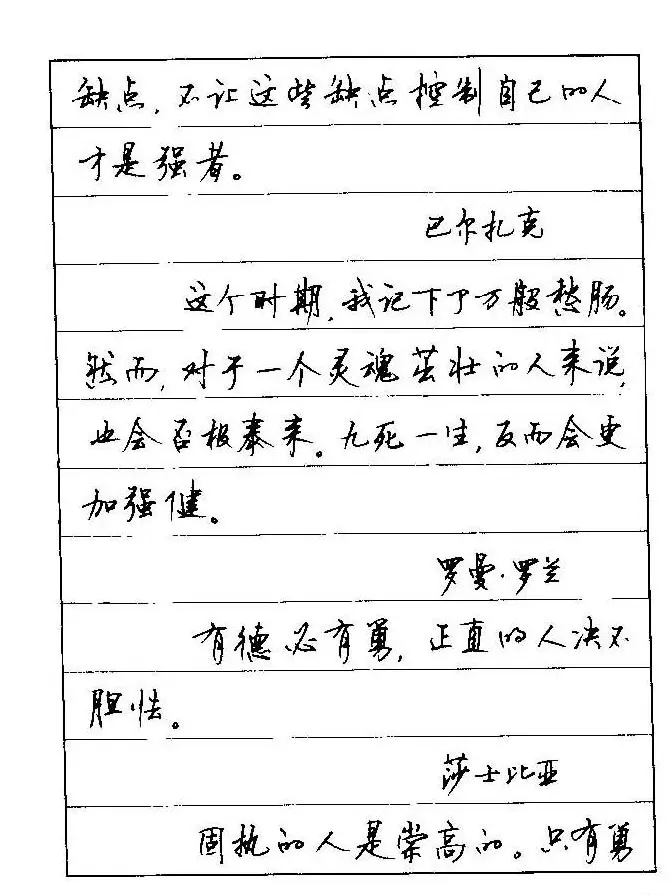 缺点，不让这些缺点控制自己的人
才是强者。
巴尔扎克
这个时期，我记下了万般愁肠。
然而，对于一个灵魂茁壮的人来说，
也会否极泰来。九死一生，反而会更
加强健。
罗曼·罗兰
有德必有勇，正直的人决不
胆怯。
莎士比亚
固执的人是崇高的。只有勇